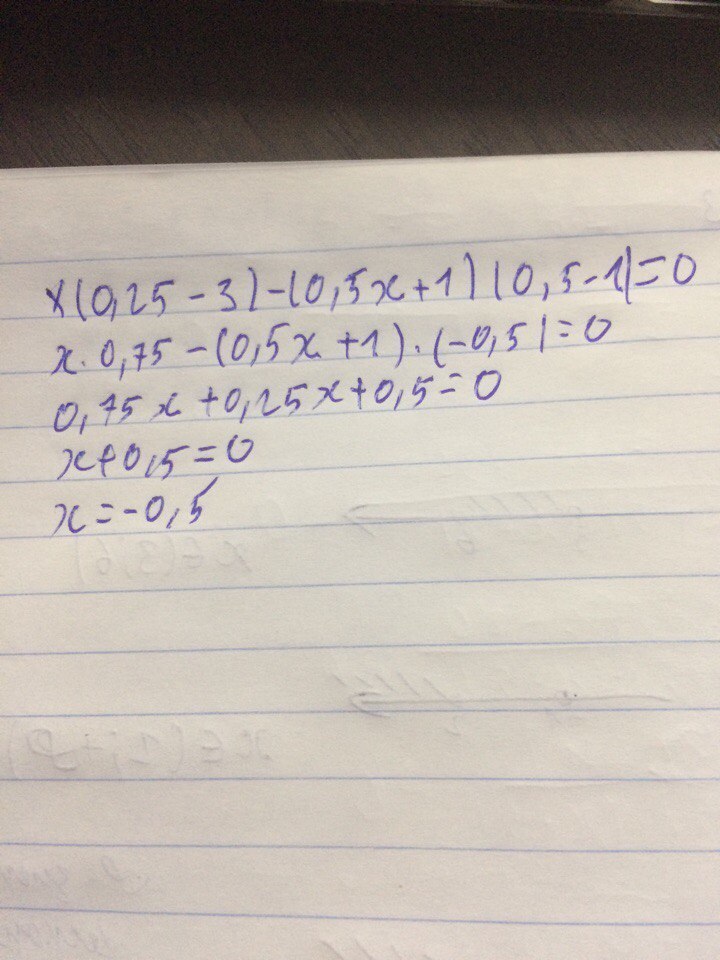 x(0,25-3)-(0,5x+1)(0,5-1)=0
x·0,75-(0,5x+1)·(-0,5)=0
0,75x+0,25x+0,5=0
x+0,5=0
x=-0,5